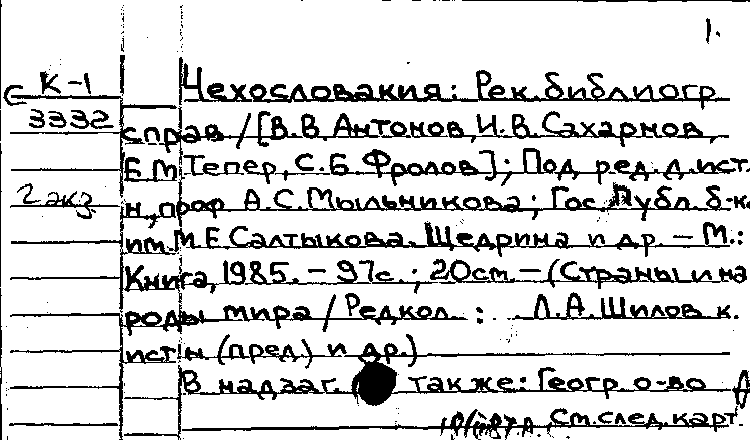 1.
К-1
С 3332
2 экз.
Чехословакия: Рек. библиогр
справ/[В.В.Антонов, И.В.Сахаров,
Б.М.Тепер, С.Б.Фролов]; Под ред. д.ист.
н., проф А.С.Мыльникова; Гос. Публ. б-ка
им. М.Е.Салтыкова-Щедрина и др. – М.:
Книга, 1985. – 97с.; 20см. – (Страны и на
роды мира / Редкол.: Л.А.Шилов к.
ист н (пред.) и др.)
В надзаг. также: Геогр. о-во
См.след.карт.